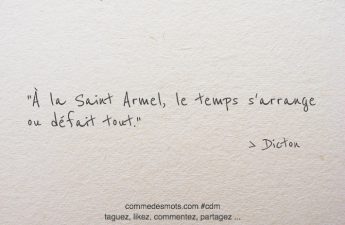 "À la Saint Armel, le temps s'arrange
ou défait tout."
> Dicton
commedesmots.com #cdm
taguez, likez, commentez, partagez ...